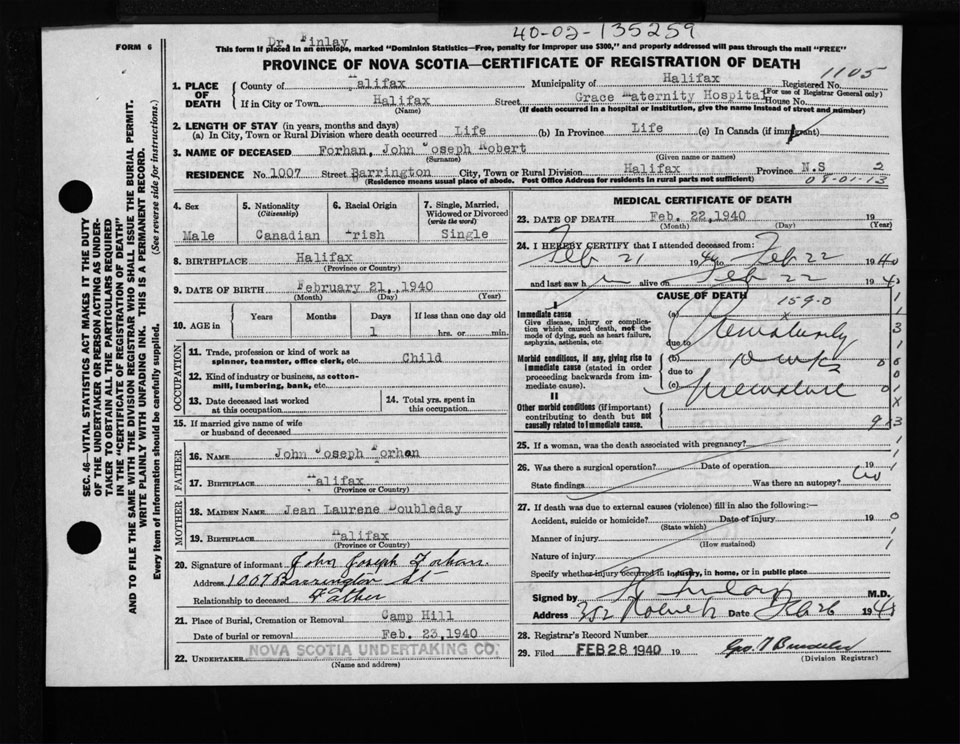 Dr. Finlay 40-02-135259
FORM 6
This form if placed in an envelope, marked "Dominion Statistics—Free, penalty for improper use $300," and properly addressed will pass through the mail "FREE"
PROVINCE OF NOVA SCOTIA—CERTIFICATE OF REGISTRATION OF DEATH
SEC. 46—VITAL STATISTICS ACT MAKES IT THE DUTY
OF THE UNDERTAKER OR PERSON ACTING AS UNDER-
TAKER TO OBTAIN ALL THE PARTICULARS REQUIRED
IN THE "CERTIFICATE OF REGISTRATION OF DEATH"
AND TO FILE THE SAME WITH THE DIVISION REGISTRAR WHO SHALL ISSUE THE BURIAL PERMIT.
WRITE PLAINLY WITH UNFADING INK. THIS IS A PERMANENT RECORD.
Every item of Information should be carefully supplied. (See reverse side for instructions.)
1. PLACE OF DEATH
County of Halifax Municipality of Halifax Registered No. 1105
(For use of Registrar General only)
If in City or Town Halifax Street Grace Maternity Hospital House No.
(Name) (If death occurred in a hospital or institution, give the name instead of street and number)
2. LENGTH OF STAY (in years, months and days)
(a) In City, Town or Rural Division where death occurred Life (b) In Province Life (c) In Canada (if immigrant)
3. NAME OF DECEASED Forhan, John Joseph Robert
(Surname) (Given name or names)
RESIDENCE No. 1007 Street Barrington City, Town or Rural Division Halifax Province N.S 2
(Residence means usual place of abode. Post Office Address for residents in rural parts not sufficient) 08-01-13
4. Sex Male
5. Nationality (Citizenship) Canadian
6. Racial Origin Irish
7. Single, Married, Widowed or Divorced (write the word) Single
8. BIRTHPLACE Halifax
(Province or Country)
9. DATE OF BIRTH February 21, 1940
(Month) (Day) (Year)
10. AGE in Years Months Days If less than one day old
1 hrs. or min.
OCCUPATION
11. Trade, profession or kind of work as
spinner, teamster, office clerk, etc. Child
12. Kind of industry or business, as cotton-
mill, lumbering, bank, etc.
13. Date deceased last worked
at this occupation
14. Total yrs. spent in
this occupation
15. If married give name of wife
or husband of deceased
FATHER
16. NAME John Joseph Forhan
17. BIRTHPLACE Halifax
(Province or Country)
MOTHER
18. MAIDEN NAME Jean Laurene Doubleday
19. BIRTHPLACE Halifax
(Province or Country)
20. Signature of informant John Joseph Forhan
Address 1007 Barrington St
Relationship to deceased Father
21. Place of Burial, Cremation or Removal Camp Hill
Date of burial or removal Feb. 23,1940
22. UNDERTAKER NOVA SCOTIA UNDERTAKING CO.
(Name and address)
MEDICAL CERTIFICATE OF DEATH
23. DATE OF DEATH Feb. 22,1940 19
(Month) (Day) (Year)
24. I HEREBY CERTIFY that I attended deceased from:
Feb 21 1940 to Feb 22 1940
and last saw h alive on Feb 22 1940
CAUSE OF DEATH
I
Immediate cause
Give disease, injury or complica-
tion which caused death, not the
mode of dying, such as heart failure,
asphyxia, asthenia, etc.
(a) 159.0
Prematurity
due to
Morbid conditions, if any, giving rise to
immediate cause (stated in order
proceeding backwards from im-
mediate cause).
(b)
due to
(c) Premature
II
Other morbid conditions (if important)
contributing to death but not
causally related to immediate cause.
25. If a woman, was the death associated with pregnancy?
26. Was there a surgical operation? Date of operation 19
State findings Was there an autopsy? No
27. If death was due to external causes (violence) fill in also the following:—
Accident, suicide or homicide? Date of injury 19
(State which)
Manner of injury
(How sustained)
Nature of injury
Specify whether injury occurred in industry, in home, or in public place
Signed by Finlay M.D.
Address 352 Date Feb 26 1940
28. Registrar's Record Number
29. Filed FEB 28 1940 19
(Division Registrar)